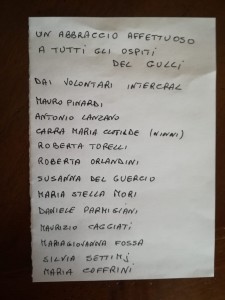 UN ABBRACCIO AFFETTUOSO
A TUTTI GLI OSPITI
DEL GULLI
DAI VOLONTARI INTERCRAL
MAURO PINARDI
ANTONIO LANZANO
CARRA MARIA CLOTILDE (NINNI)
ROBERTA TORELLI
ROBERTA ORLANDINI
SUSANNA DEL GUERCIO
MARIA STELLA MORI
DANIELE PARMIGIANI
MAURIZIO CAGGIATI
MARIAGIOVANNA FOSSA
SILVIA SETTIMJ
MARIA COFFRINI